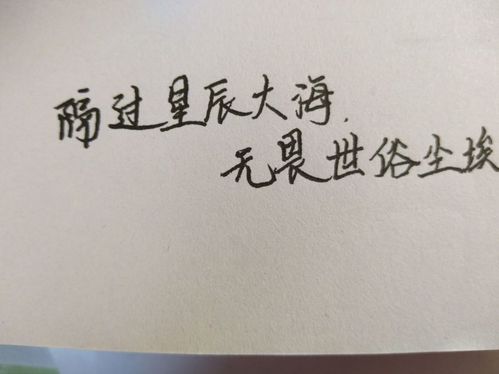 隔过星辰大海.
无畏世俗尘埃